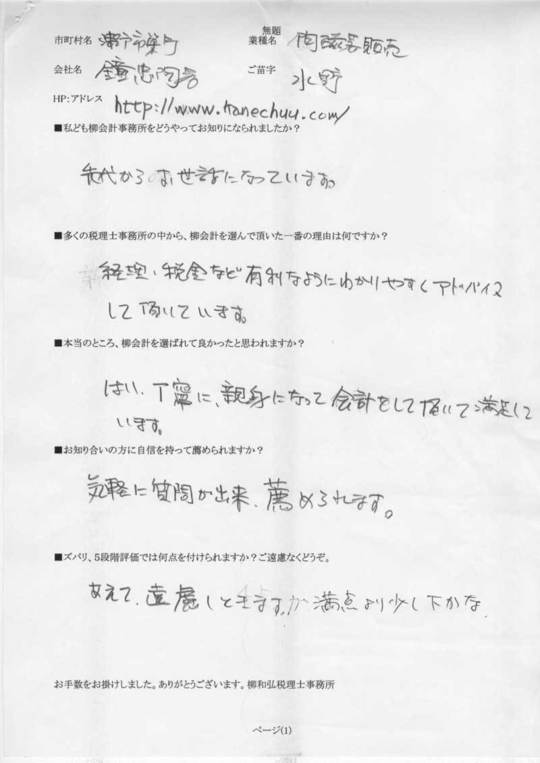 無題
市町村名 瀬戸市栄町 業種名 陶磁器販売
会社名 鐘忠陶器 ご苗字 水野
HP:アドレス http://www.kanechuu.com/
■私ども柳会計事務所をどうやってお知りになられましたか?
先代からお世話になっています。
■多くの税理士事務所の中から、柳会計を選んで頂いた一番の理由は何ですか?
経理、税金など有利なようにわかりやすくアドバイス
して頂いています。
■本当のところ、柳会計を選ばれて良かったと思われますか?
はい、丁寧に、親身になって会計をして頂いて満足して
います。
■お知り合いの方に自信を持って薦められますか?
気軽に質問が出来、薦められます。
■ズバリ、5段階評価では何点を付けられますか?ご遠慮なくどうぞ。
あえて、遠慮しときますが満点より少し下かな
お手数をお掛けしました。ありがとうございます。柳和弘税理士事務所
ページ(1)